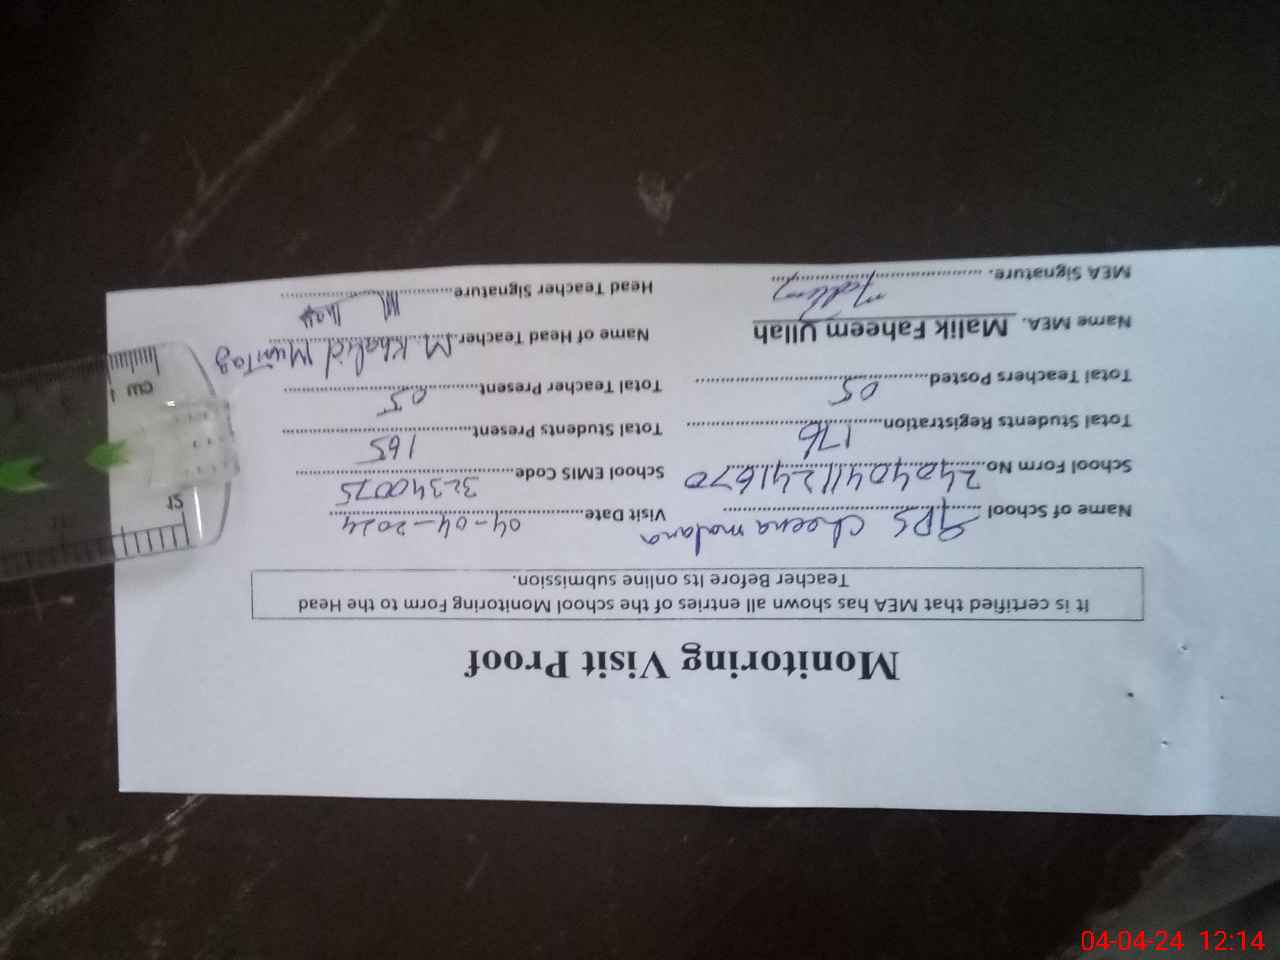 Monitoring Visit Proof
It is certified that MEA has shown all entries of the school Monitoring Form to the Head
Teacher Before Its online submission.
Name of School GPS Cheena malana Visit Date 04-04-2024
School Form No. 24040411241670 School EMIS Code 32340075
Total Students Registration 176 Total Students Present 165
Total Teachers Posted 05 Total Teacher Present 05
Name MEA. Malik Faheem Ullah Name of Head Teacher. M. Khalid Mumtaz
MEA Signature. Head Teacher Signature
12
cm 1
04-04-24 12:14